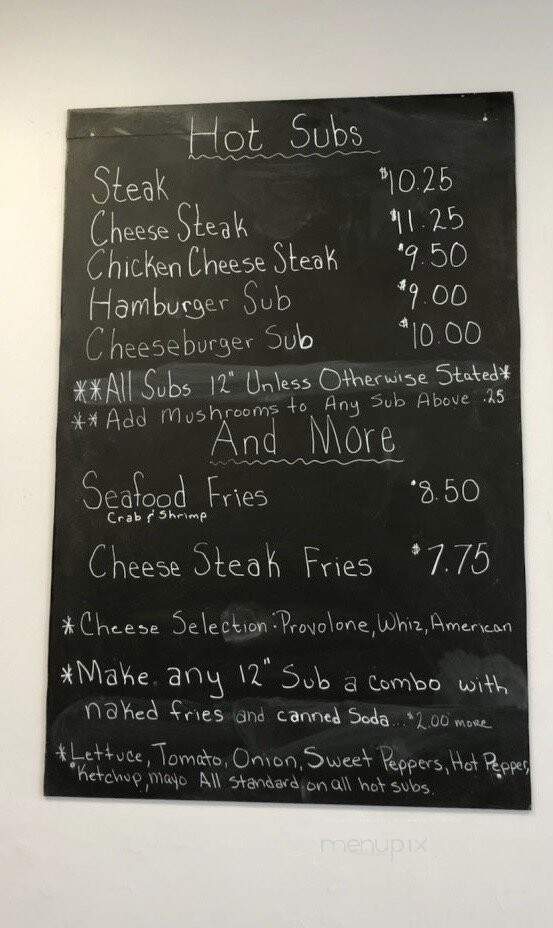 Hot Subs
Steak $10.25
Cheese Steak $11.25
Chicken Cheese Steak $9.50
Hamburger Sub $9.00
Cheeseburger Sub $10.00
**All Subs 12" Unless Otherwise Stated*
** Add Mushrooms to Any Sub Above .25
And More
Seafood Fries $8.50
Crab & Shrimp
Cheese Steak Fries $7.75
*Cheese Selection: Provolone, Whiz, American
*Make any 12" Sub a combo with
naked fries and canned Soda... $2.00 more
*Lettuce, Tomato, Onion, Sweet Peppers, Hot Pepper,
Ketchup, mayo All Standard on all hot subs.
menupix